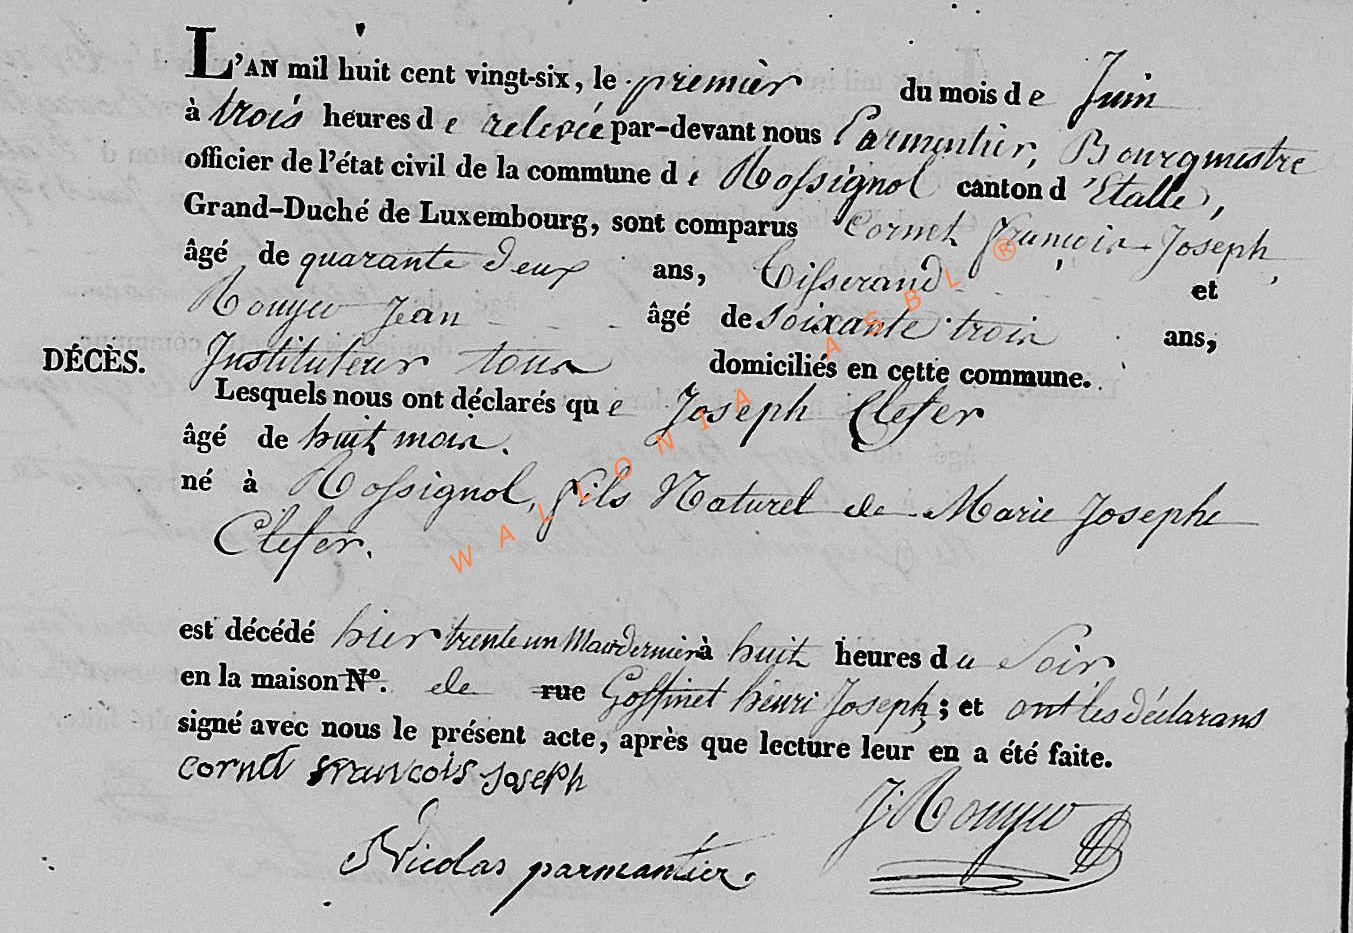 L'AN mil huit cent vingt-six, le premier du mois de Juin
à trois heures de relevée par-devant nous Parmentier, Bourgmestre
officier de l'état civil de la commune de Rossignol canton d'Etalle,
Grand-Duché de Luxembourg, sont comparus Cornet François Joseph,
âgé de quarante deux ans, Tisserand et
Rouyer Jean âgé de soixante trois ans,
DÉCÈS. Instituteur tous domiciliés en cette commune.
Lesquels nous ont déclarés que Joseph Clefer
âgé de huit mois.
né à Rossignol, fils Naturel de Marie Josephe
Clefer.
est décédé hier trente un Mai dernier à huit heures du Soir
en la maison N°. de rue Goffinet henri Joseph; et ont les déclarans
signé avec nous le présent acte, après que lecture leur en a été faite.
cornet francois joseph
J. Rouyer
Nicolas parmantier.
WALLONIA ASBL ®